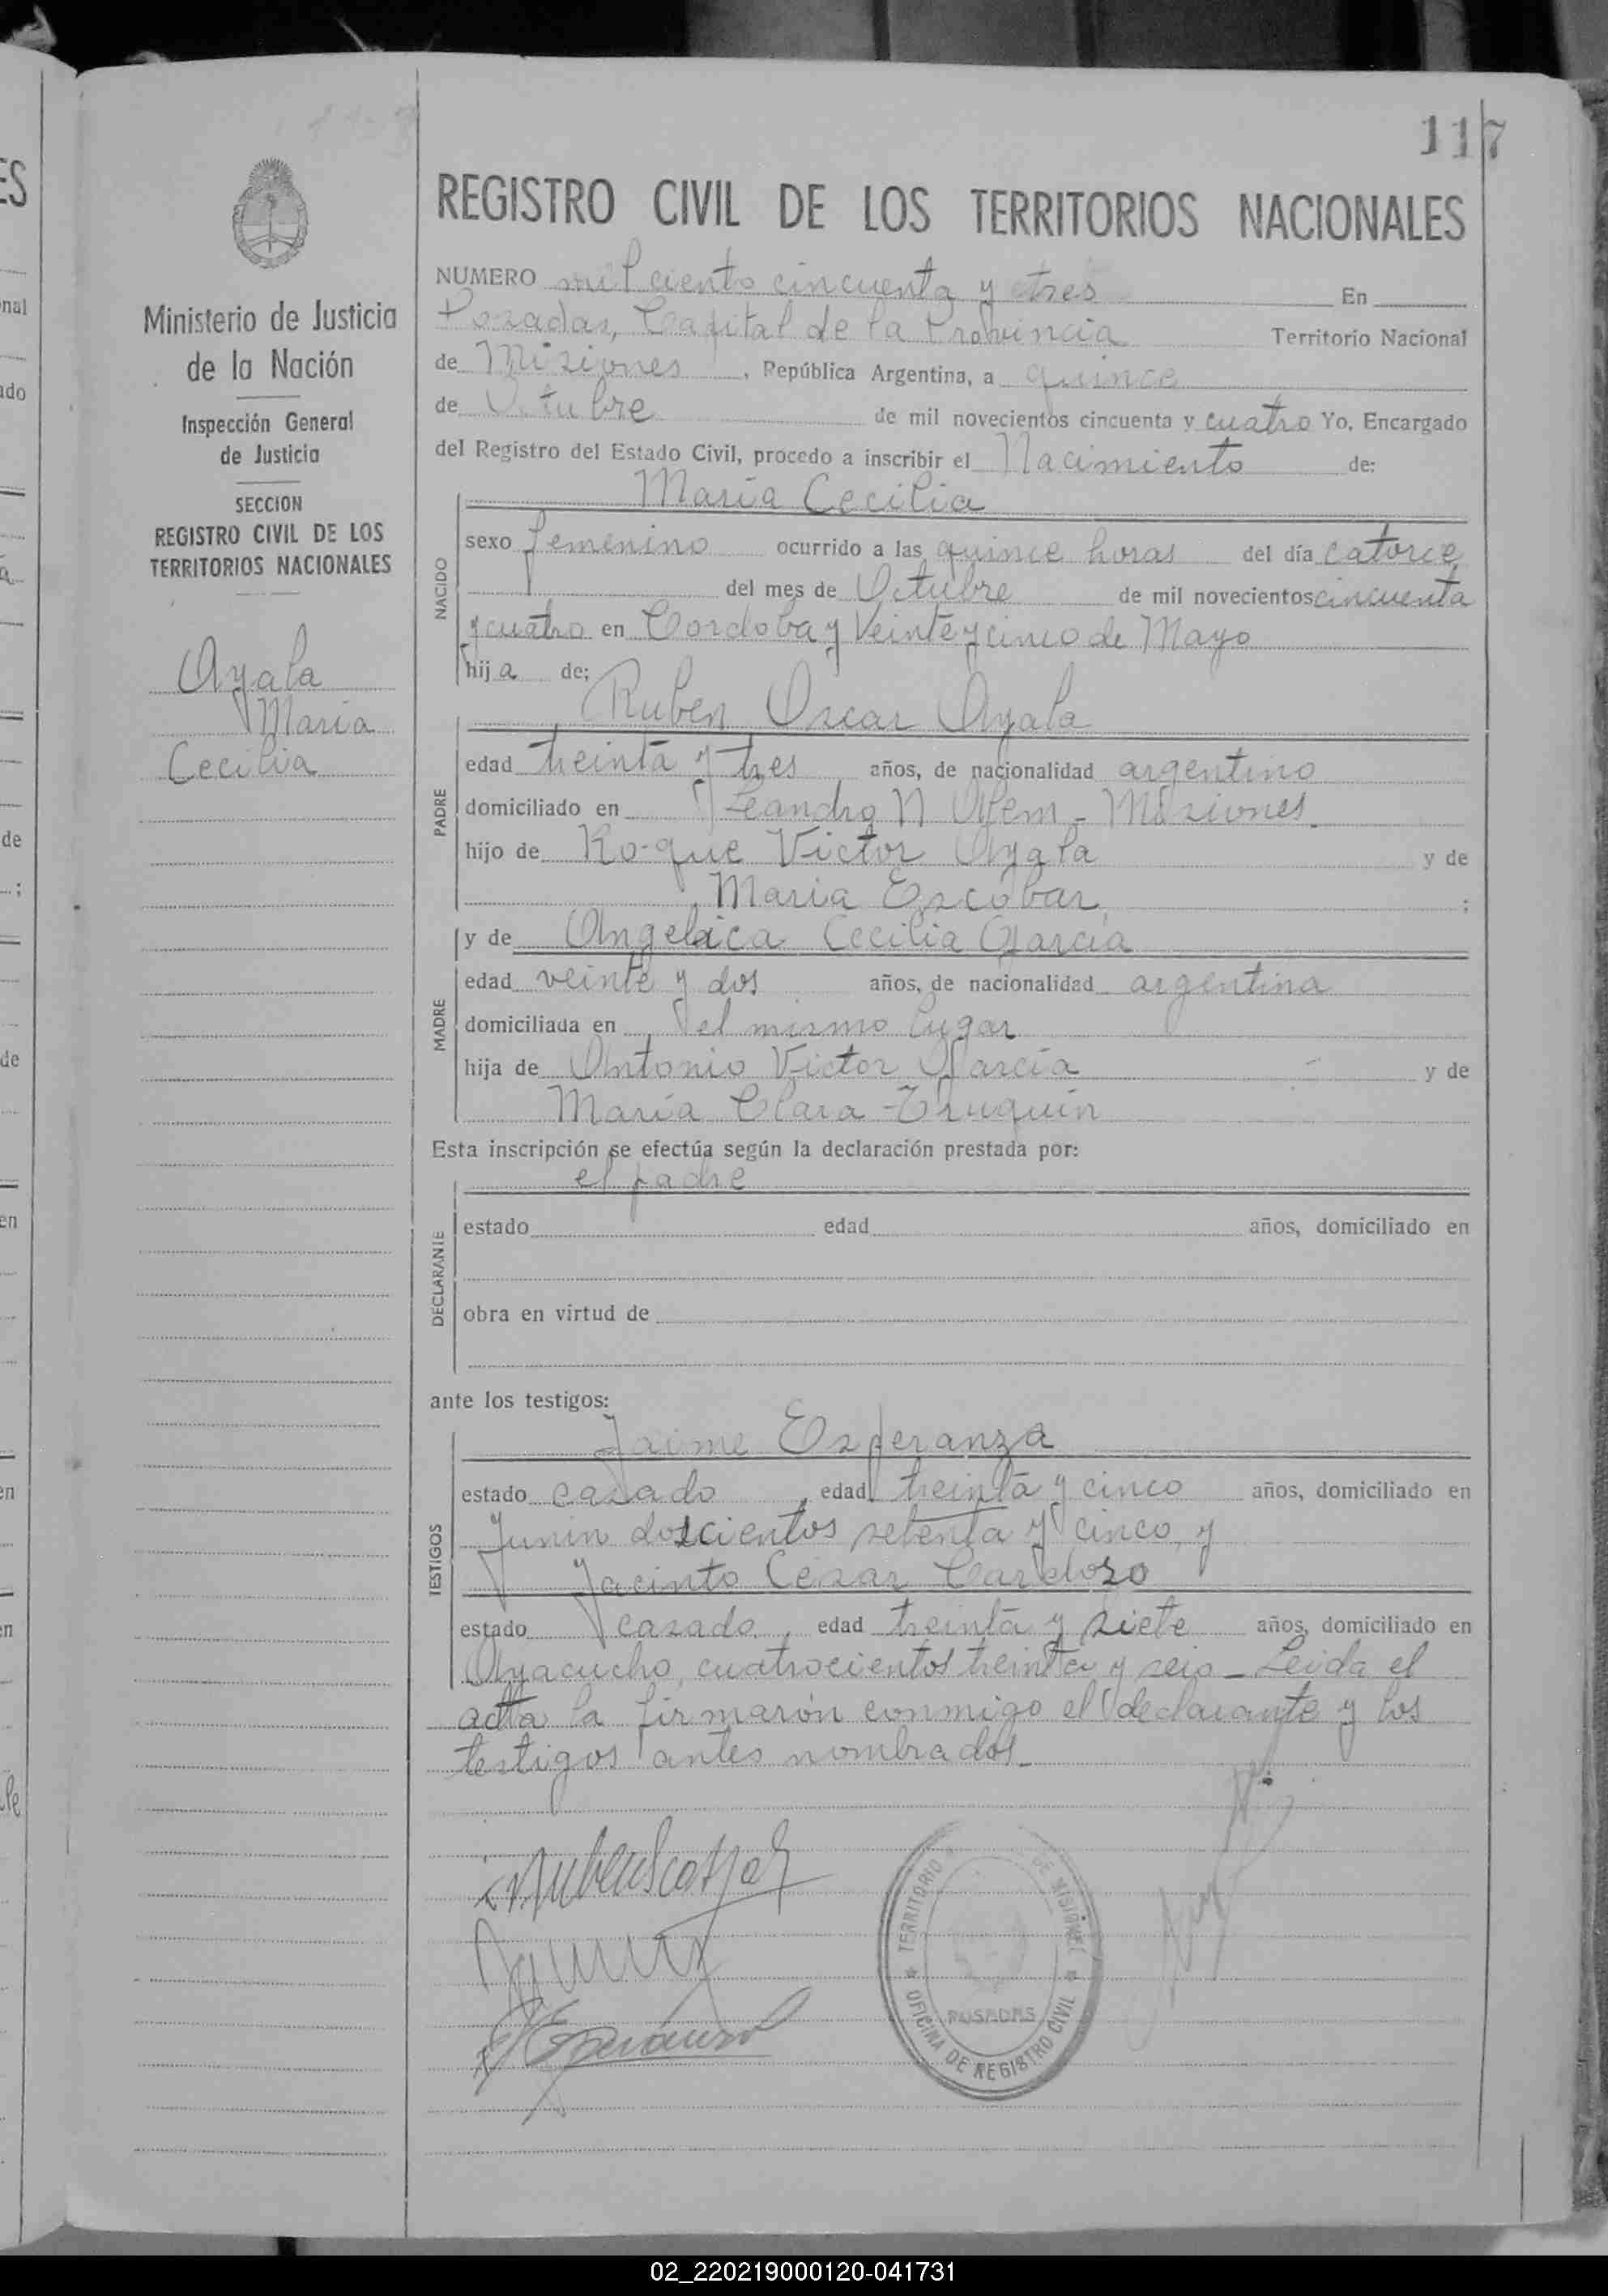 117
REGISTRO CIVIL DE LOS TERRITORIOS NACIONALES
Ministerio de Justicia
de la Nación
Inspección General
de Justicia
SECCION
REGISTRO CIVIL DE LOS
TERRITORIOS NACIONALES
Ayala
Maria
Cecilia
NUMERO mil ciento cincuenta y tres En
Posadas, Capital de la Provincia Territorio Nacional
de Misiones, República Argentina, a quince
de Octubre de mil novecientos cincuenta y cuatro Yo, Encargado
del Registro del Estado Civil, procedo a inscribir el Nacimiento de:
María Cecilia
NACIDO
sexo femenino ocurrido a las quince horas del día catorce
del mes de Octubre de mil novecientos cincuenta
y cuatro en Cordoba y Veinte y cinco de Mayo
hija de;
Ruben Oscar Ayala
PADRE
edad treinta y tres años, de nacionalidad argentino
domiciliado en Leandro N Alem - Misiones.
hijo de Roque Victor Ayala y de
Maria Escobar, ;
y de Angelica Cecilia Garcia
MADRE
edad veinte y dos años, de nacionalidad argentina
domiciliada en el mismo lugar
hija de Antonio Victor Garcia y de
María Clara Truquin
Esta inscripción se efectúa según la declaración prestada por:
el padre
DECLARANTE
estado edad años, domiciliado en
obra en virtud de
ante los testigos:
Jaime Esperanza
TESTIGOS
estado casado, edad treinta y cinco años, domiciliado en
Junin doscientos setenta y cinco, y
Jacinto Cesar Cardozo
estado casado, edad treinta y siete años, domiciliado en
Ayacucho, cuatrocientos treinta y seis - Leida el
acta la firmarón conmigo el declarante y los
testigos antes nombrados.
TERRITORIO DE MISIONES
POSADAS
OFICINA DE REGISTRO CIVIL
02_220219000120-041731